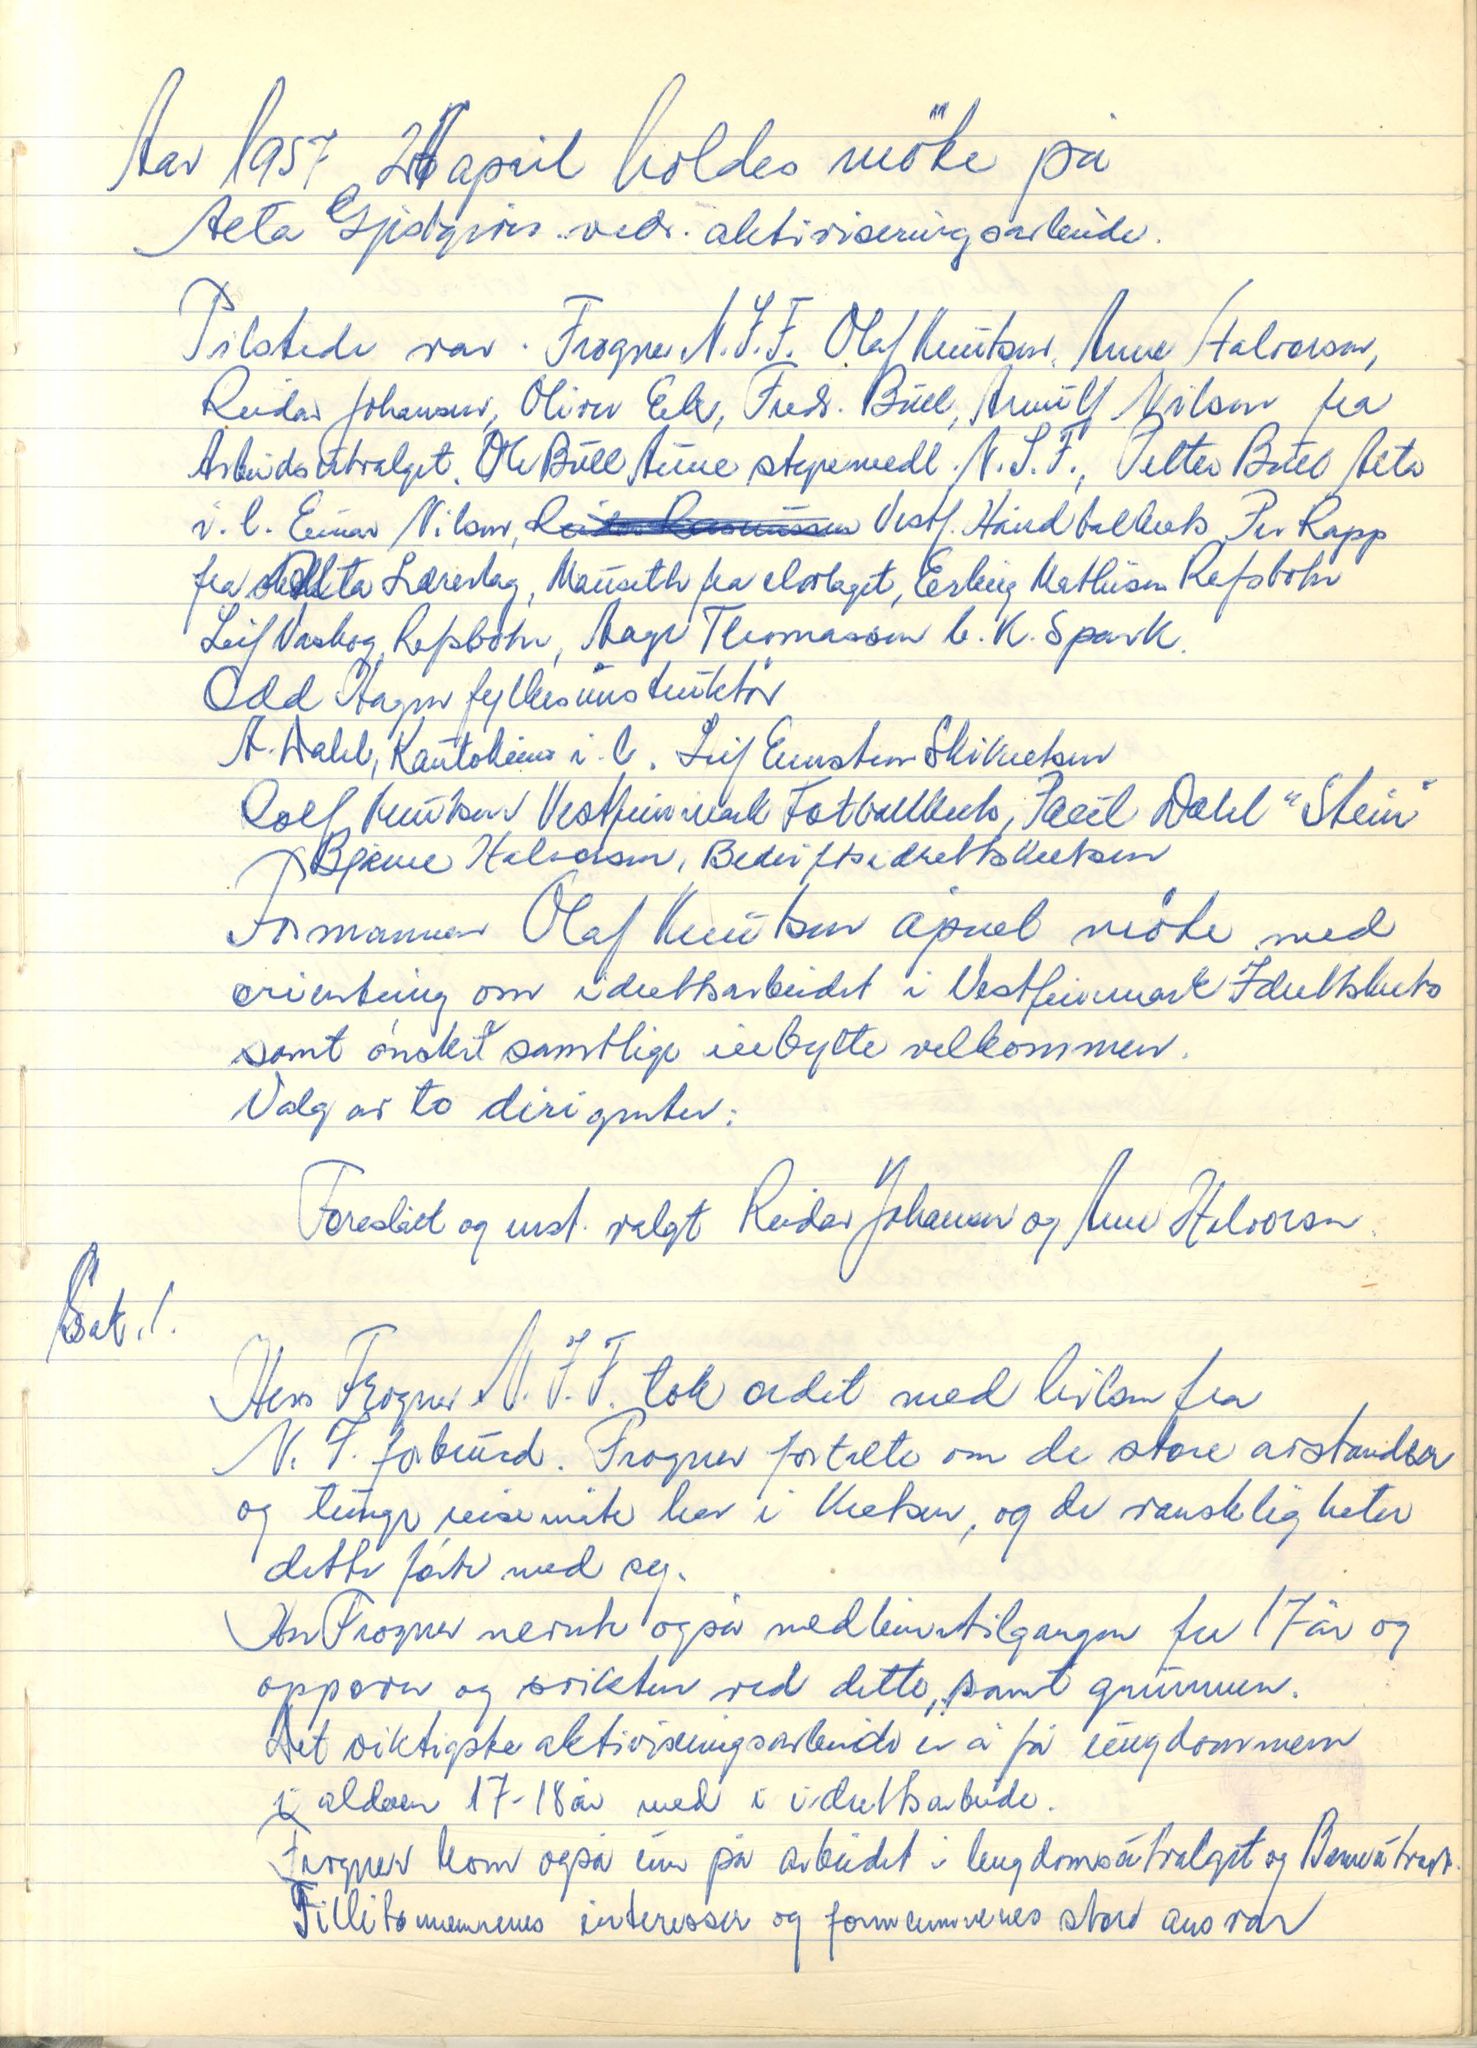 Aar 1957 april holdes möte på
Alta Gjestgiveri vedr. aktiviseringsarbeide.
Tilstede var. Frogner N.F.F. Olaf Knutsen, Arne Halvorsen,
Reidar Johansen, Oliver Eek, Fredr. Bull, Arnulf Nilsen fra
Arbeidsutvalget. Ole Bull Aune N.S.F., Petter Bull Alta
i.l. Einar Nilsen, Vestf. Håndballkrets Per Rapp
fra Alta Lærerlag, Mauseth fra elvelaget, Erling Mathisen Refsbotn
Leif Vasbog, Refsbotn, Aage Thomassen b.K. Spark.
Odd Hagen fylkesinstruktör
A. Dahl, Kautokeino i.l. Leif Ernstsen Skikretsen
Rolf Knutsen Vestfinnmark Fotballkrets, Paul Dahl "Stein"
Bjarne Halvorsen, Bedriftsidrettskretsen
Formannen Olaf Knutsen åpnet möte med
orientering om idrettsarbeidet i Vestfinnmark Idrettskrets
samt önsket samtlige innbydte velkommen.
Valg av to dirigenter:
Foreslått og enst. valgt Reidar Johansen og Arne Halvorsen.
Sak. 1.
Herr Frogner N.F.F. tok ordet med hilsen fra
N.F. forbund. Frogner fortalte om de store avstander
og tunge reisemåte her i kretsen, og de vanskligheter
dette förte med seg.
Herr Frogner nevnte også medlemstilgangen fra 17 år og
oppover og svikten ved dette, samt grunnen.
Det viktigste aktiviseringsarbeide er å få ungdommen
i alderen 17-18 år med i idrettsarbeide.
Frogner kom også inn på arbeidet i Ungdomsutvalget og
Tillitsmennenes interesser og formennenes store ansvar